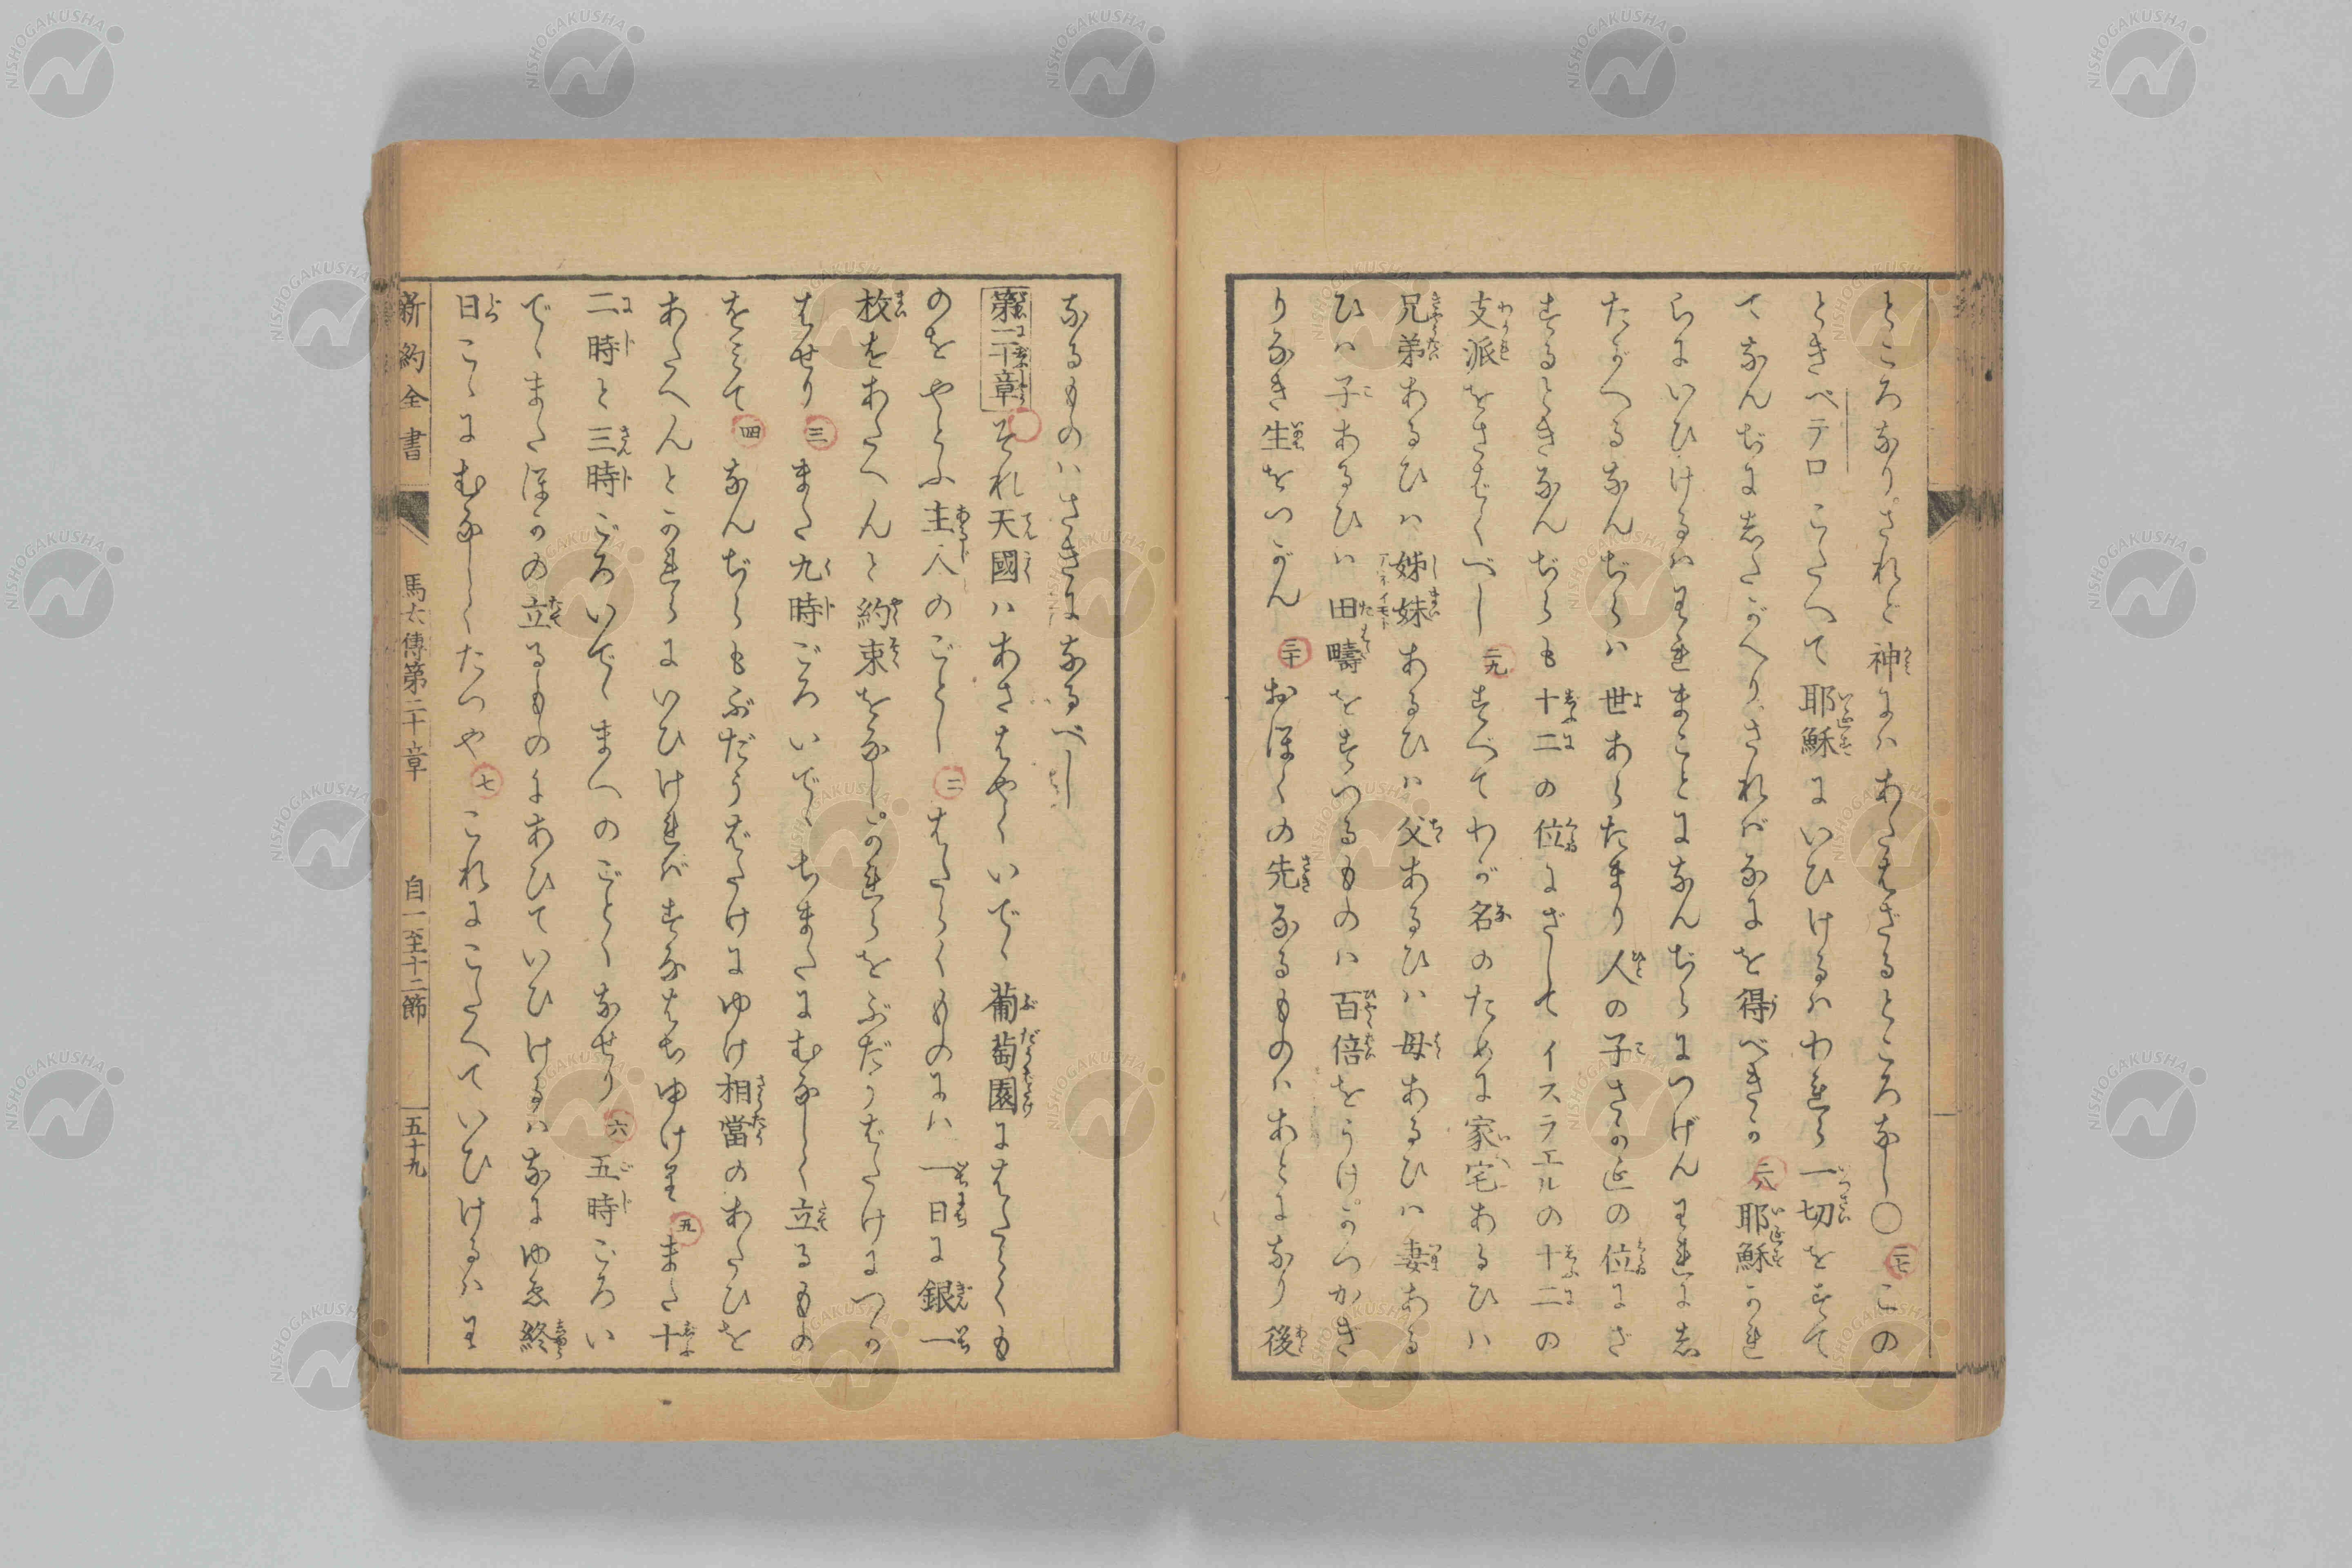 ところなりされど神にハあたはざるところなし〇二七この
ときペテロこたへて耶穌にいひけるハわれら一切をすて
てなんぢにしたがへりさればなにを得べきか二八耶穌かれ
らにいひけるハわれまことになんぢらにつげんわれにし
たがへるなんぢらハ世あらたまり人の子さかえの位にざ
するときなんぢらも十二の位にざしてイスラエルの十二の
支派をさばくべし二九すべてわが名のために家宅あるひハ
兄弟あるひハ姊妹あるひハ父あるひハ母あるひハ妻ある
ひハ子あるひハ田疇をすつるものハ百倍をうけかつかぎ
りなき生をつがん三十おほくの先なるものハあとになり後
なるものハさきになるべし
第二十章それ天國ハあさはやくいでゝ葡萄園にはたらくも
のをやとふ主人のごとし二はたらくものにハ一日に銀一
枚をあたへんと約束をなしかれらをぶだうばたけにつか
はせり三また九時ごろいでゝちまたにむなしく立るもの
をみて四なんぢらもぶだうばたけにゆけ相當のあたひを
あたへんとかれらにいひければすなはちゆけり五また十
二時と三時ごろいでゝまへのごとくなせり六五時ごろい
でゝまたほかの立るものにあひていひけるハなにゆゑ終
日こゝにむなしくたつや七これにこたへていひけるハわ
新約全書 馬太傳第二十章 自一至十二節 五十九
NISHOGAKUSHA